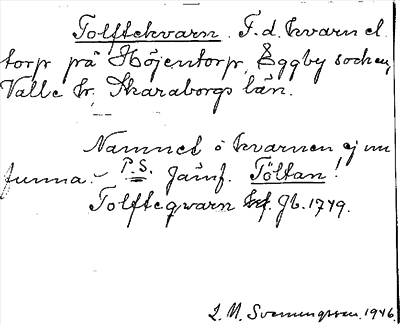 Tolftekvarn. F.d. kvarn el.
torp på Höjentorp, Eggby socken,
Valle hr, Skaraborgs län.
Namnet å kvarnen ej nu
funna. - P.S. Jämf. Töltan!
Tolfteqwarn Jb. 1749.
L. M. Svenungsson. 1946.